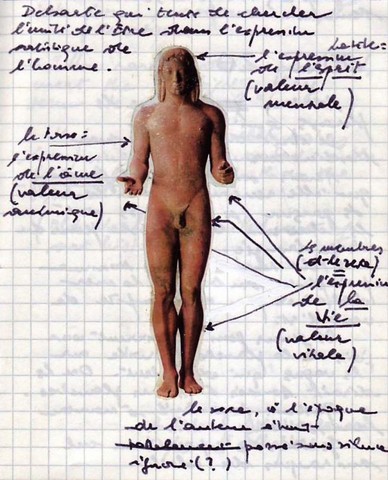 Delsarte qui tente de chercher
l'unité de l'Être dans l'expression
artistique de
l'homme.
La tête =
l'expression
de l'esprit
(valeur
mentale)
le torse =
l'expression
de l'âme
(valeur
animique)
les membres
(et le sexe)
l'expression
de la
Vie
(valeur
vitale)
le sexe, à l'époque
de l'auteur étant
passé sous silence
ignoré (?)